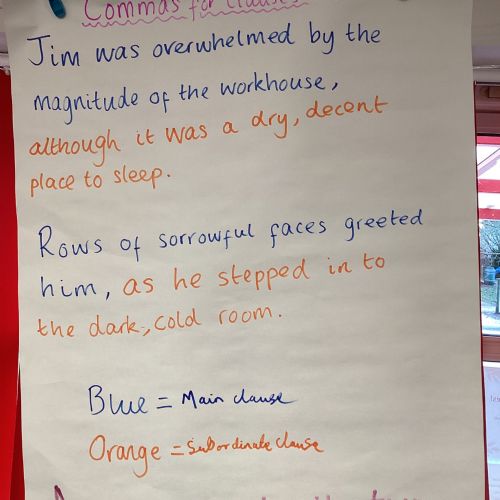 Commas for Clauses
Jim was overwhelmed by the
magnitude of the workhouse,
although it was a dry, decent
place to sleep.
Rows of sorrowful faces greeted
him, as he stepped in to
the dark, cold room.
Blue = Main clause
Orange = Subordinate clause